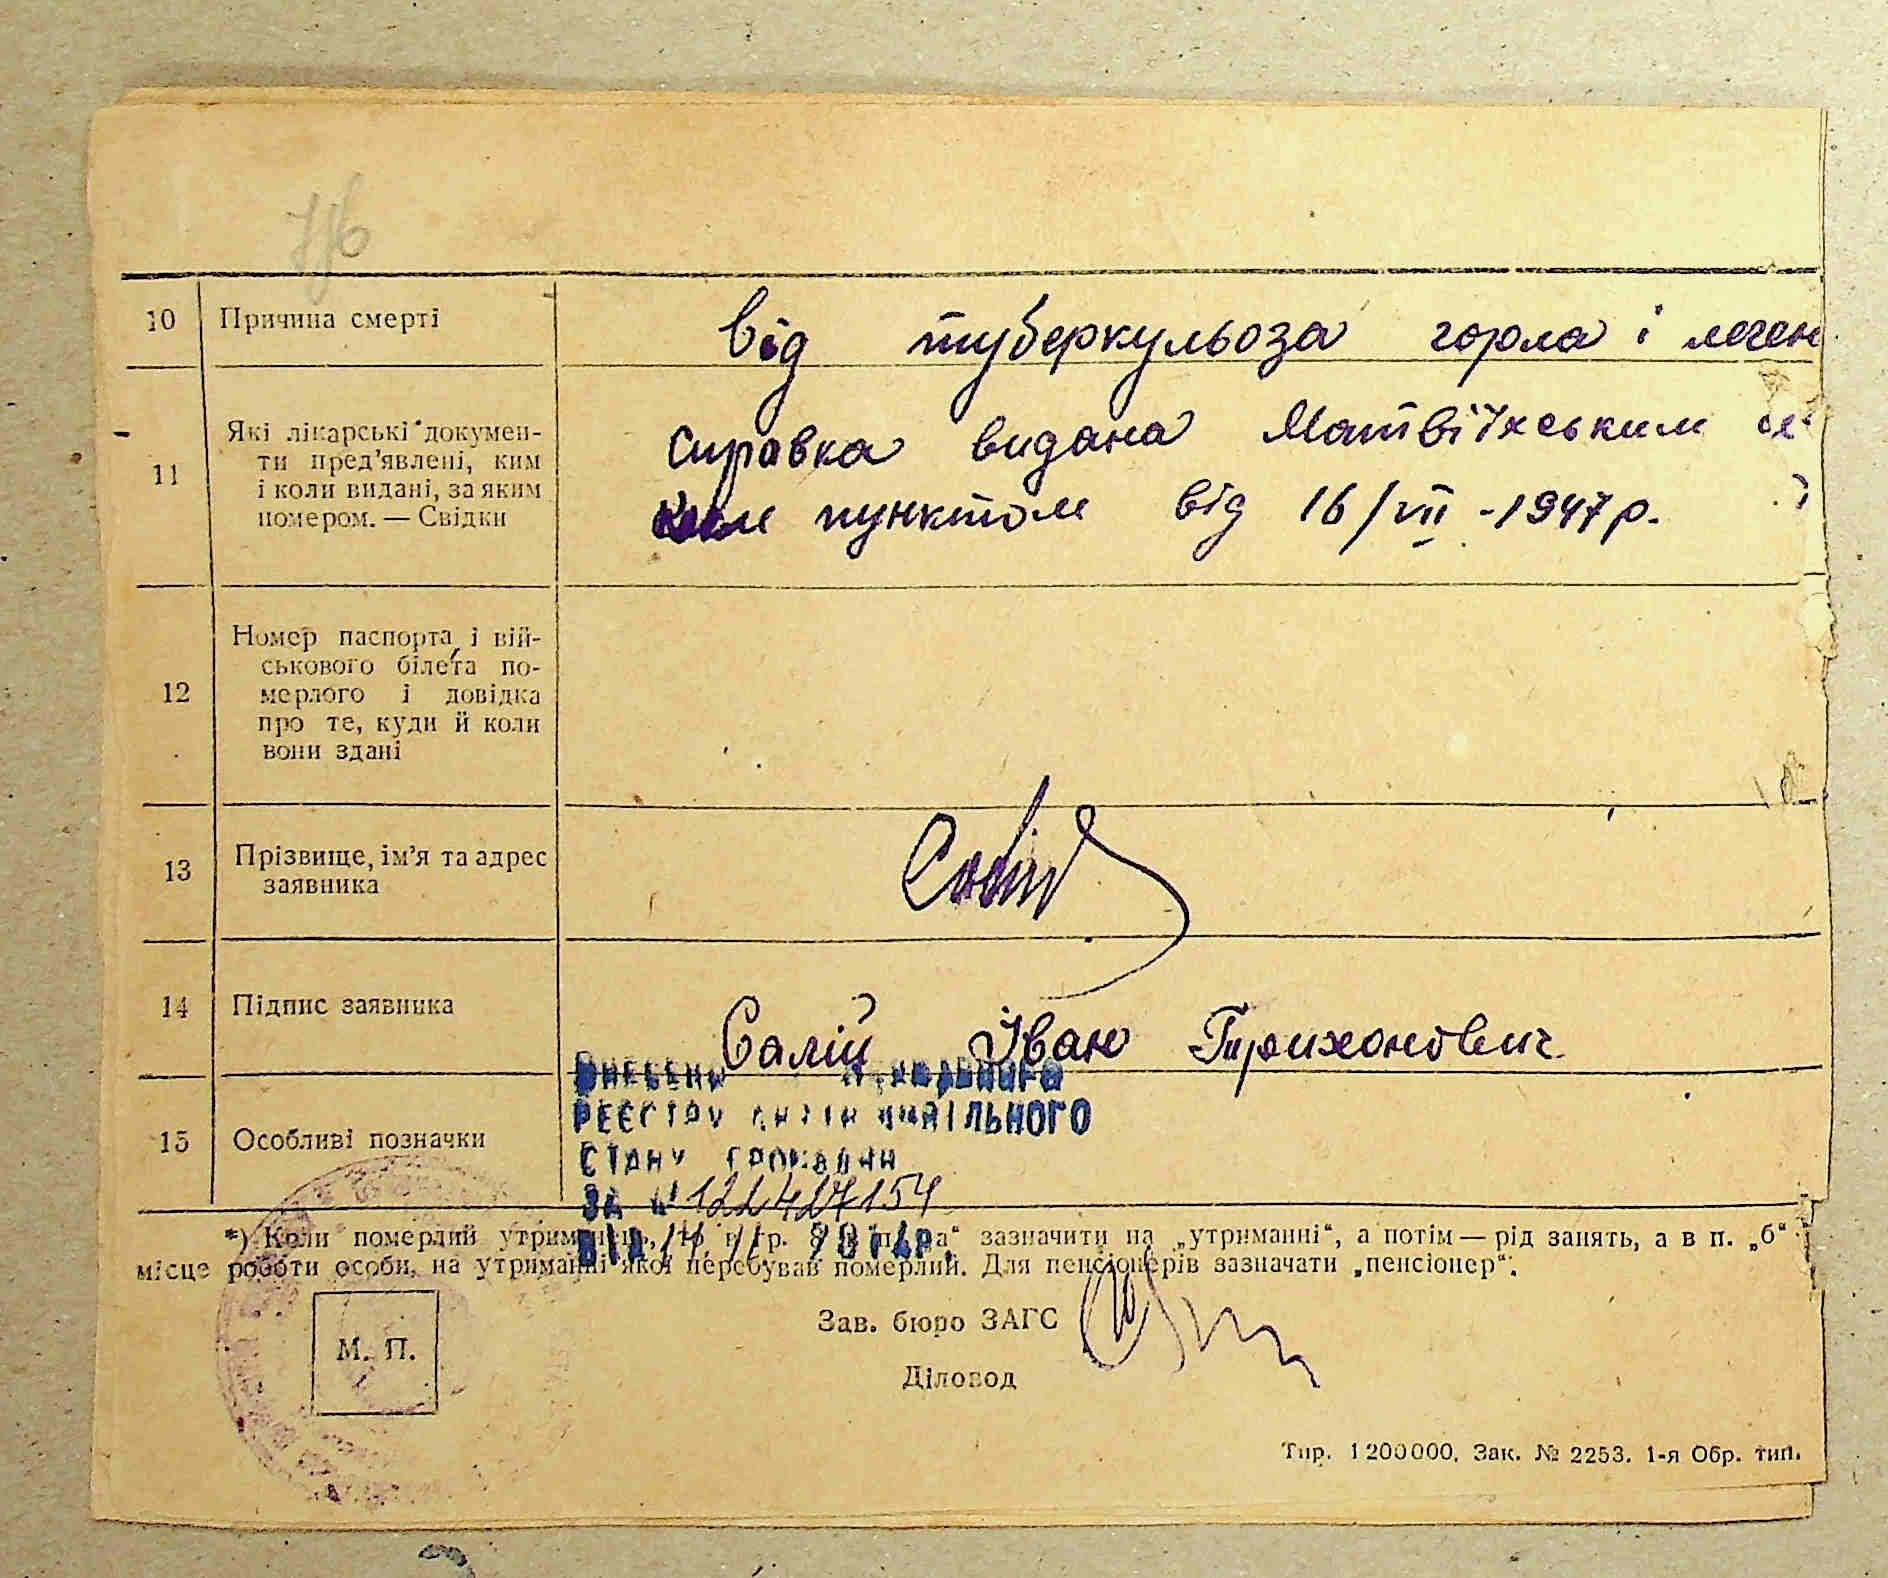 10 Причина смерті від туберкульоза горла і леген
11 Які лікарські докумен-
ти пред'явлені, ким
і коли видані, за яким
номером. — Свідки
справка видана Матвіїхським
пунктом від 16/VII - 1947 р.
12 Номер паспорта і вій-
ськового білета по-
мерлого і довідка
про те, куди й коли
вони здані
13 Прізвище, ім'я та адрес
заявника
14 Підпис заявника Салій Іван
15 Особливі позначки
ВНЕСЕНО ДЕРЖАВНОГО
РЕЄСТРУ АКТІВ ЦИВІЛЬНОГО
СТАНУ ГРОМАДЯН
ЗА № 122427154
ВІД
*) Коли померлий зазначити на „утриманні“, а потім — рід занять, а в п. „б“
місце роботи особи, на утриманні якої перебував померлий. Для пенсіонерів зазначати „пенсіонер“.
Зав. бюро ЗАГС
М. П.
Діловод
Тир. 1200000. Зак. № 2253. 1-я Обр. тип.